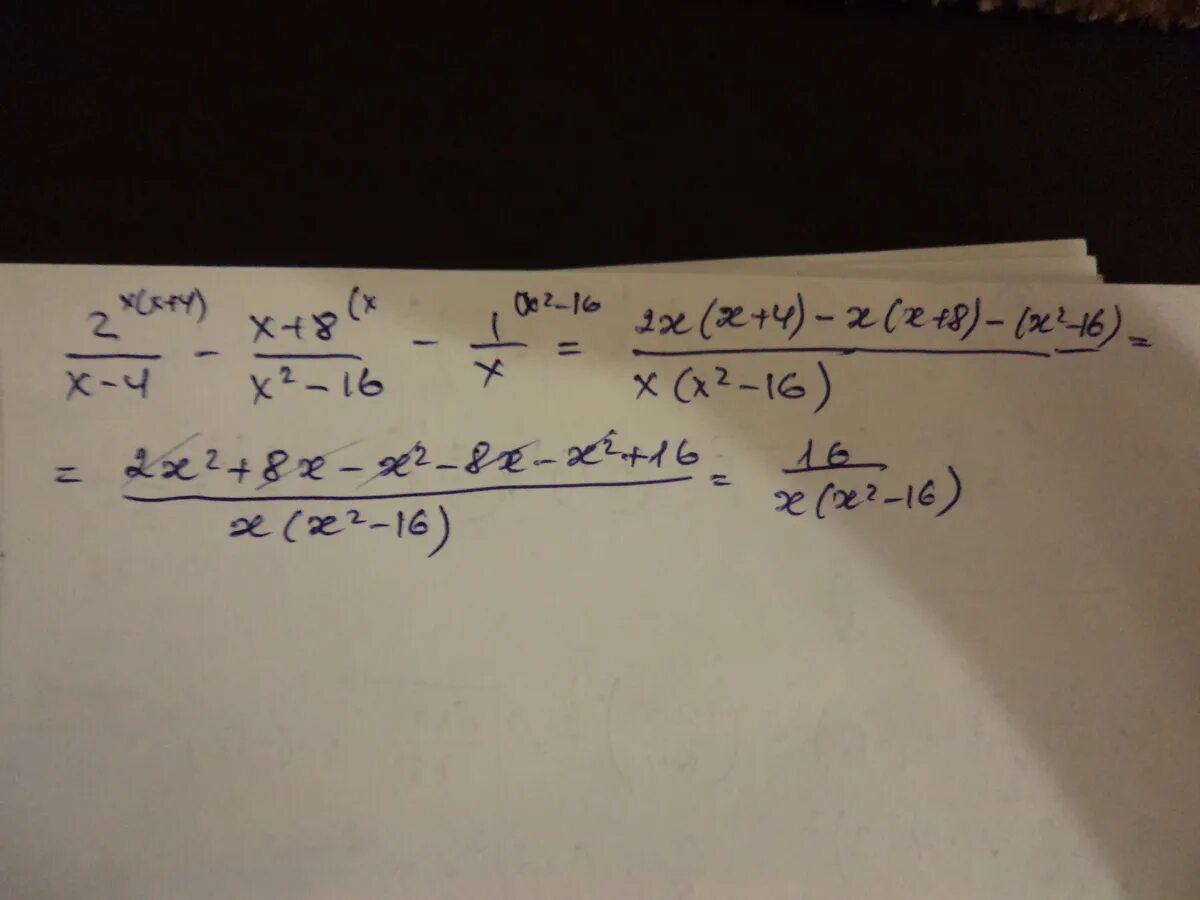 2^{x(x+4)}/(x-4) - x+8^{(x}/(x²-16) - 1^{(x²-16}/x = (2x(x+4)-x(x+8)-(x²-16))/(x(x²-16)) =
= (2x²+8x-x²-8x-x²+16)/(x(x²-16)) = 16/(x(x²-16))